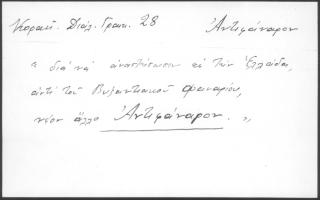 Κοραῆ. Διάλ. Γραικ. 28 Ἀντιφάναρον
« διὰ νὰ ἀναστήσωσιν εἰς τὴν Ἑλλάδα,
ἀντὶ τοῦ Βυζαντιακοῦ Φαναρίου,
νέον ἄλλο Ἀντιφάναρον. »